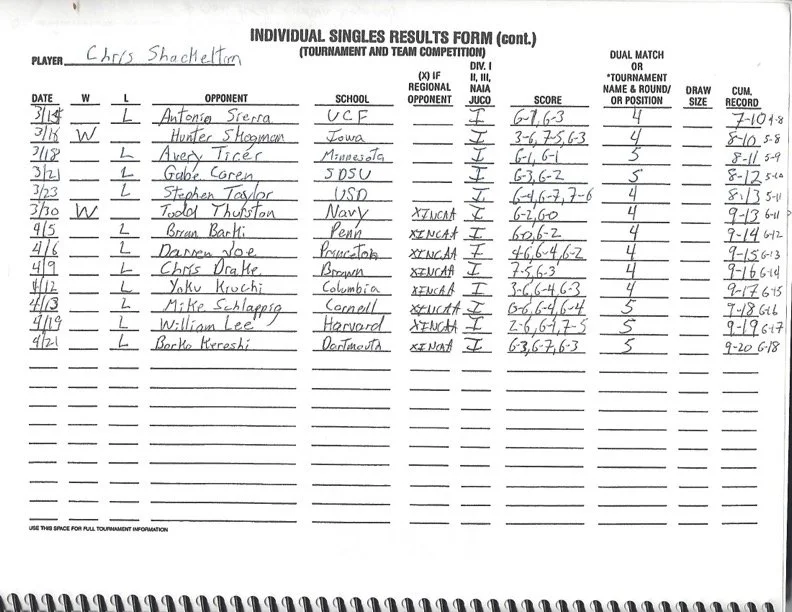 INDIVIDUAL SINGLES RESULTS FORM (cont.)
(TOURNAMENT AND TEAM COMPETITION)
PLAYER Chris Shackelton
DATE W L OPPONENT SCHOOL (X) IF REGIONAL OPPONENT DIV. I II, III, NAIA JUCO SCORE DUAL MATCH OR *TOURNAMENT NAME & ROUND/ OR POSITION DRAW SIZE CUM. RECORD
3/14 L Antonio Sierra UCF I 6-1, 6-3 4 7-10 4-8
3/16 W Hunter Skogman Iowa I 3-6, 7-5, 6-3 4 8-10 5-8
3/18 L Avery Ticer Minnesota I 6-1, 6-1 5 8-11 5-9
3/21 L Gabe Coren SDSU I 6-3, 6-2 5 8-12 5-10
3/23 L Stephen Taylor USD I 6-4, 6-7, 7-6 4 8-13 5-11
3/30 W Todd Thurston Navy XINCAA I 6-2, 6-0 4 9-13 6-11
4/5 L Brian Barki Penn XINCAA I 6-0, 6-2 4 9-14 6-12
4/6 L Darren Joe Princeton XINCAA I 4-6, 6-4, 6-2 4 9-15 6-13
4/9 L Chris Drake Brown XINCAA I 7-5, 6-3 4 9-16 6-14
4/12 L Yoku Kiuchi Columbia XINCAA I 3-6, 6-4, 6-3 4 9-17 6-15
4/13 L Mike Schlappig Cornell XINCAA I 6-4, 6-4 5 9-18 6-16
4/19 L William Lee Harvard XINCAA I 2-6, 7-5 5 9-19 6-17
4/21 L Borko Kereshi Dartmouth XINCAA I 6-3, 6-7, 6-3 5 9-20 6-18
USE THIS SPACE FOR FULL TOURNAMENT INFORMATION